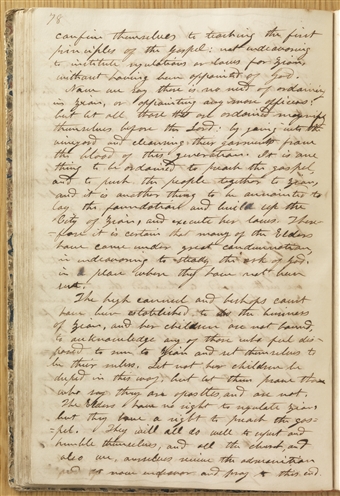 78
confine themselves to teaching the first
principles of the Gospel: not endeavoring
to institute regulations or laws for Zion,
without having been appointed of God.
Now we say there is no need of ordaining
in Zion, or appointing any more officers:
but let all those that are ordained magnify
themselves before the Lord: by going into the
vineyard and cleansing their garments from
the blood of this generation. It is one
thing to be ordained to preach the gospel,
and to push the people together to Zion,
and it is another thing to be annointed to
lay the foundation and build up the
City of Zion, and execute her laws. There-
fore it is certain that many of the Elders
have come under great condemnation,
in endeavoring to steady the ark of God.
in a place where they have not been
sent.
The high council and bishops court
have been established: to do the business
of Zion, and her children are not bound,
to acknowledge any of those who feel dis-
posed to run to Zion and set themselves to
be their rulers. Let not her children be
duped in this way; but let them prove those
who say they are apostles, and are not.
The Elders have no right to regulate Zion,
but they have a right to preach the gos-
pel. They will all do well to repent and
humble themselves, and all the church, and
also we, ourselves receive the admonition
and do now endeavor and pray to this end